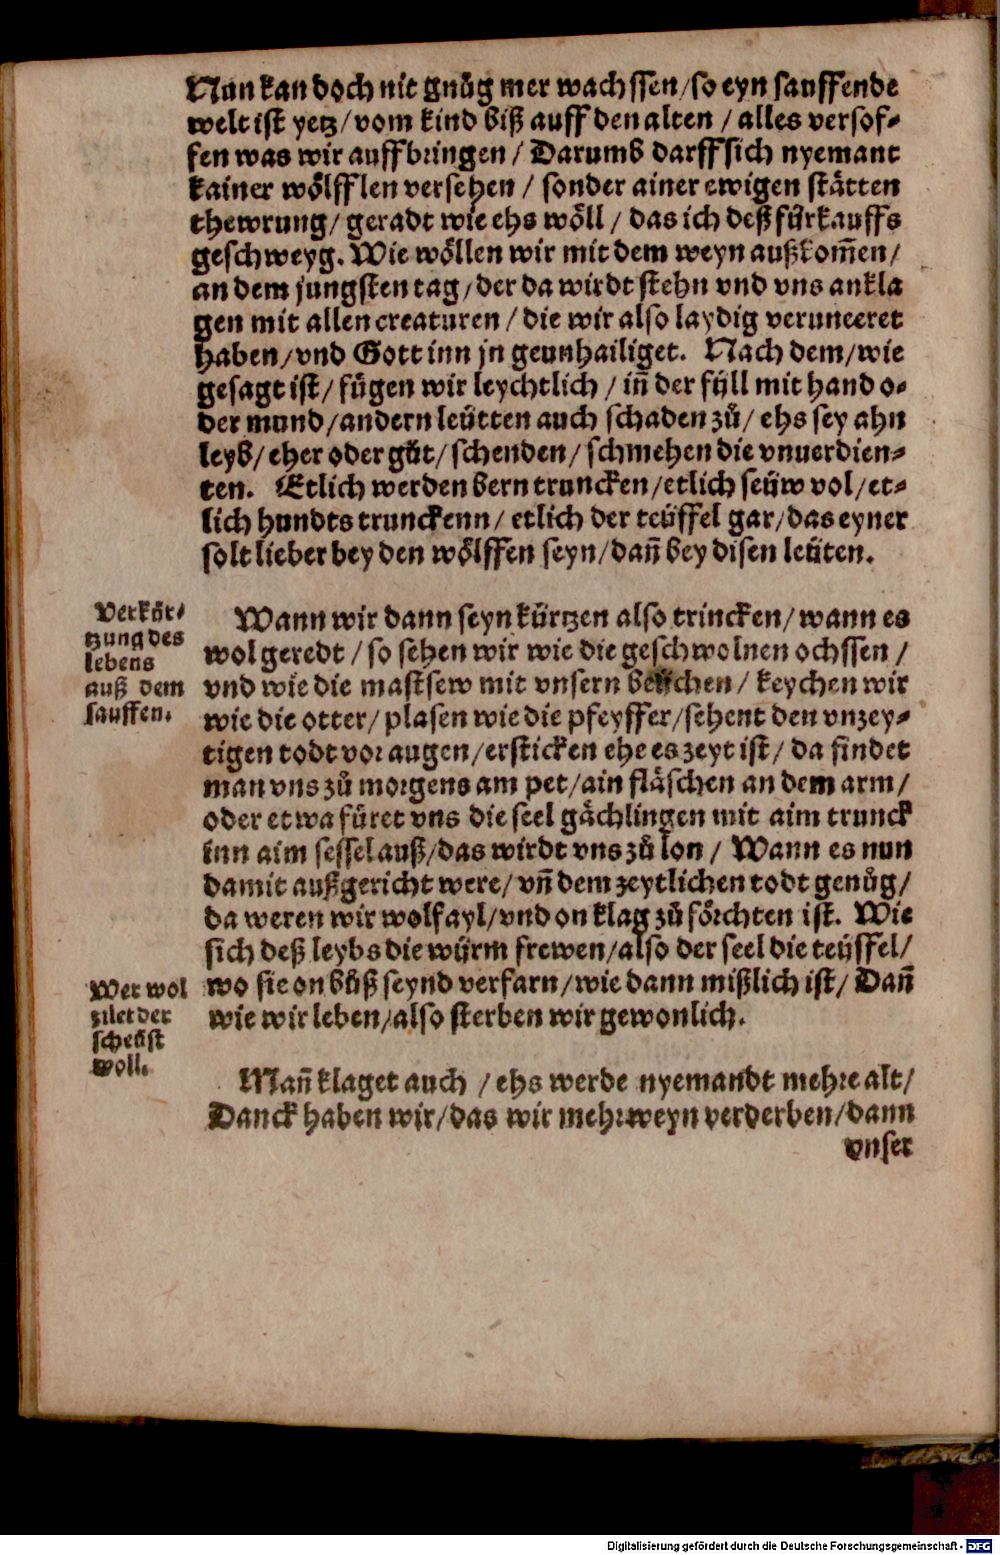 Nun kan doch nit gnůg mer wachssen/so eyn sauffende
welt ist yetz/vom kind biß auff den alten / alles versof-
fen was wir auffbringen / Darumb darff sich nyemant
kainer wölfflen versehen / sonder ainer ewigen stätten
thewrung/ geradt wie ehs wöll / das ich deß fürkauffs
geschweyg. Wie wöllen wir mit dem weyn außkom̄en/
an dem jungsten tag/der da wirdt stehn vnd vns ankla
gen mit allen creaturen / die wir also laydig veruneeret
haben/vnd Gott inn jn geunhailiget. Nach dem/wie
gesagt ist/fügen wir leychtlich / in̄ der fyll mit hand o-
der mund/andern leütten auch schaden zů/ ehs sey ahn
leyb/eher oder gůt/schenden/schmehen die vnuerdien-
ten. Etlich werden bern truncken/etlich seüw vol/et-
lich hundts trunckenn/ etlich der teüffel gar/das eyner
solt lieber bey den wölffen seyn/dan̄ bey disen leüten.
Verkür-
tzung des
lebens
auß dem
sauffen.
Wann wir dann seyn kürtzen also trincken/wann es
wol geredt / so sehen wir wie die geschwolnen ochssen /
vnd wie die mastsew mit vnsern beüchen/ keychen wir
wie die otter/ plasen wie die pfeyffer/sehent den vnzey-
tigen todt vor augen/ersticken ehe es zeyt ist/ da findet
man vns zů morgens am pet/ain fläschen an dem arm/
oder etwa füret vns die seel gächlingen mit aim trunck
inn aim sessel auß/das wirdt vns zů lon / Wann es nun
damit außgericht were/vn̄ dem zeytlichen todt genůg/
da weren wir wolfayl/vnd on klag zů förchten ist. Wie
sich deß leybs die würm frewen/also der seel die teüffel/
Wer wol
zilet der
scheüst
woll.
wo sie on bůß seynd verfarn/wie dann mißlich ist/ Dan̄
wie wir leben/also sterben wir gewonlich.
Man̄ klaget auch / ehs werde nyemandt mehre alt/
Danck haben wir/das wir mehr weyn verderben/dann
vnser
Digitalisierung gefördert durch die Deutsche Forschungsgemeinschaft - DFG